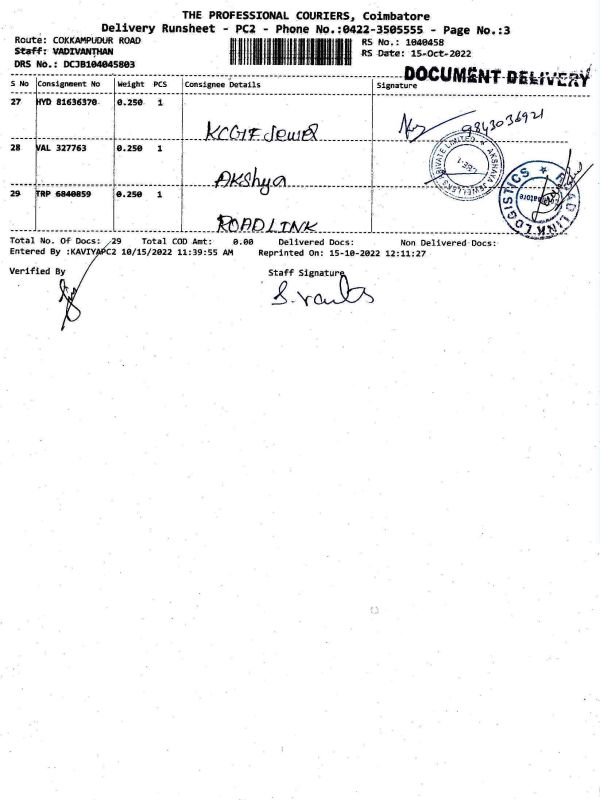 THE PROFESSIONAL COURIERS, Coimbatore
Delivery Runsheet - PC2 - Phone No.:0422-3505555 - Page No.:3
Route: COKKAMPUDUR ROAD RS No.: 1040458
Staff: VADIVANTHAN RS Date: 15-Oct-2022
DRS No.: DCJB104045803 DOCUMENT DELIVERY
S No Consignment No Weight PCS Consignee Details Signature
27 HYD 81636370 0.250 1
KCGIE Jewel 9843036921
28 VAL 327763 0.250 1
AKshya
AKSHAYA JEWELLERS PRIVATE LIMITED
CBE-1
29 TRP 6840859 0.250 1
ROADLINK
ROAD LINK LOGISTICS
Total No. Of Docs: 29 Total COD Amt: 0.00 Delivered Docs: Non Delivered Docs:
Entered By :KAVIYAPC2 10/15/2022 11:39:55 AM Reprinted On: 15-10-2022 12:11:27
Verified By Staff Signature